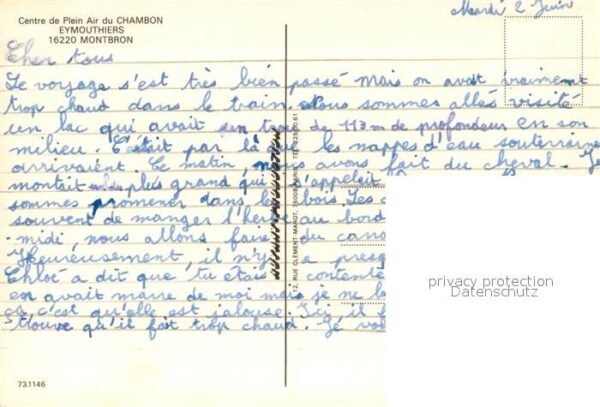 Centre de Plein Air du CHAMBON
EYMOUTHIERS
16220 MONTBRON
Mardi 2 Juin
Cher tous
Le voyage s'est très bien passé mais on avait vraiment
trop chaud dans le train. Nous sommes allés visité
un lac qui avait un trou de 113 m de profondeur en son
milieu. C'était par là que les nappes d'eau souterraine
arrivaient. Ce matin, nous avons fait du cheval. Je
montait le plus grand qui s'appelait
sommes promener dans les bois. Les
souvent de manger l'herbe au bord
midi, nous allons faire du cano
Heureusement, il n'y a presq
Chloé a dit que tu étais contente
en avait marre de moi mais je ne
ça, c'est qu'elle est jalouse. Ici il f
trouve qu'il fait trop chaud. Je vou
12, RUE CLÉMENT-MAROT, 75008 PARIS
privacy protection
Datenschutz
73.1146